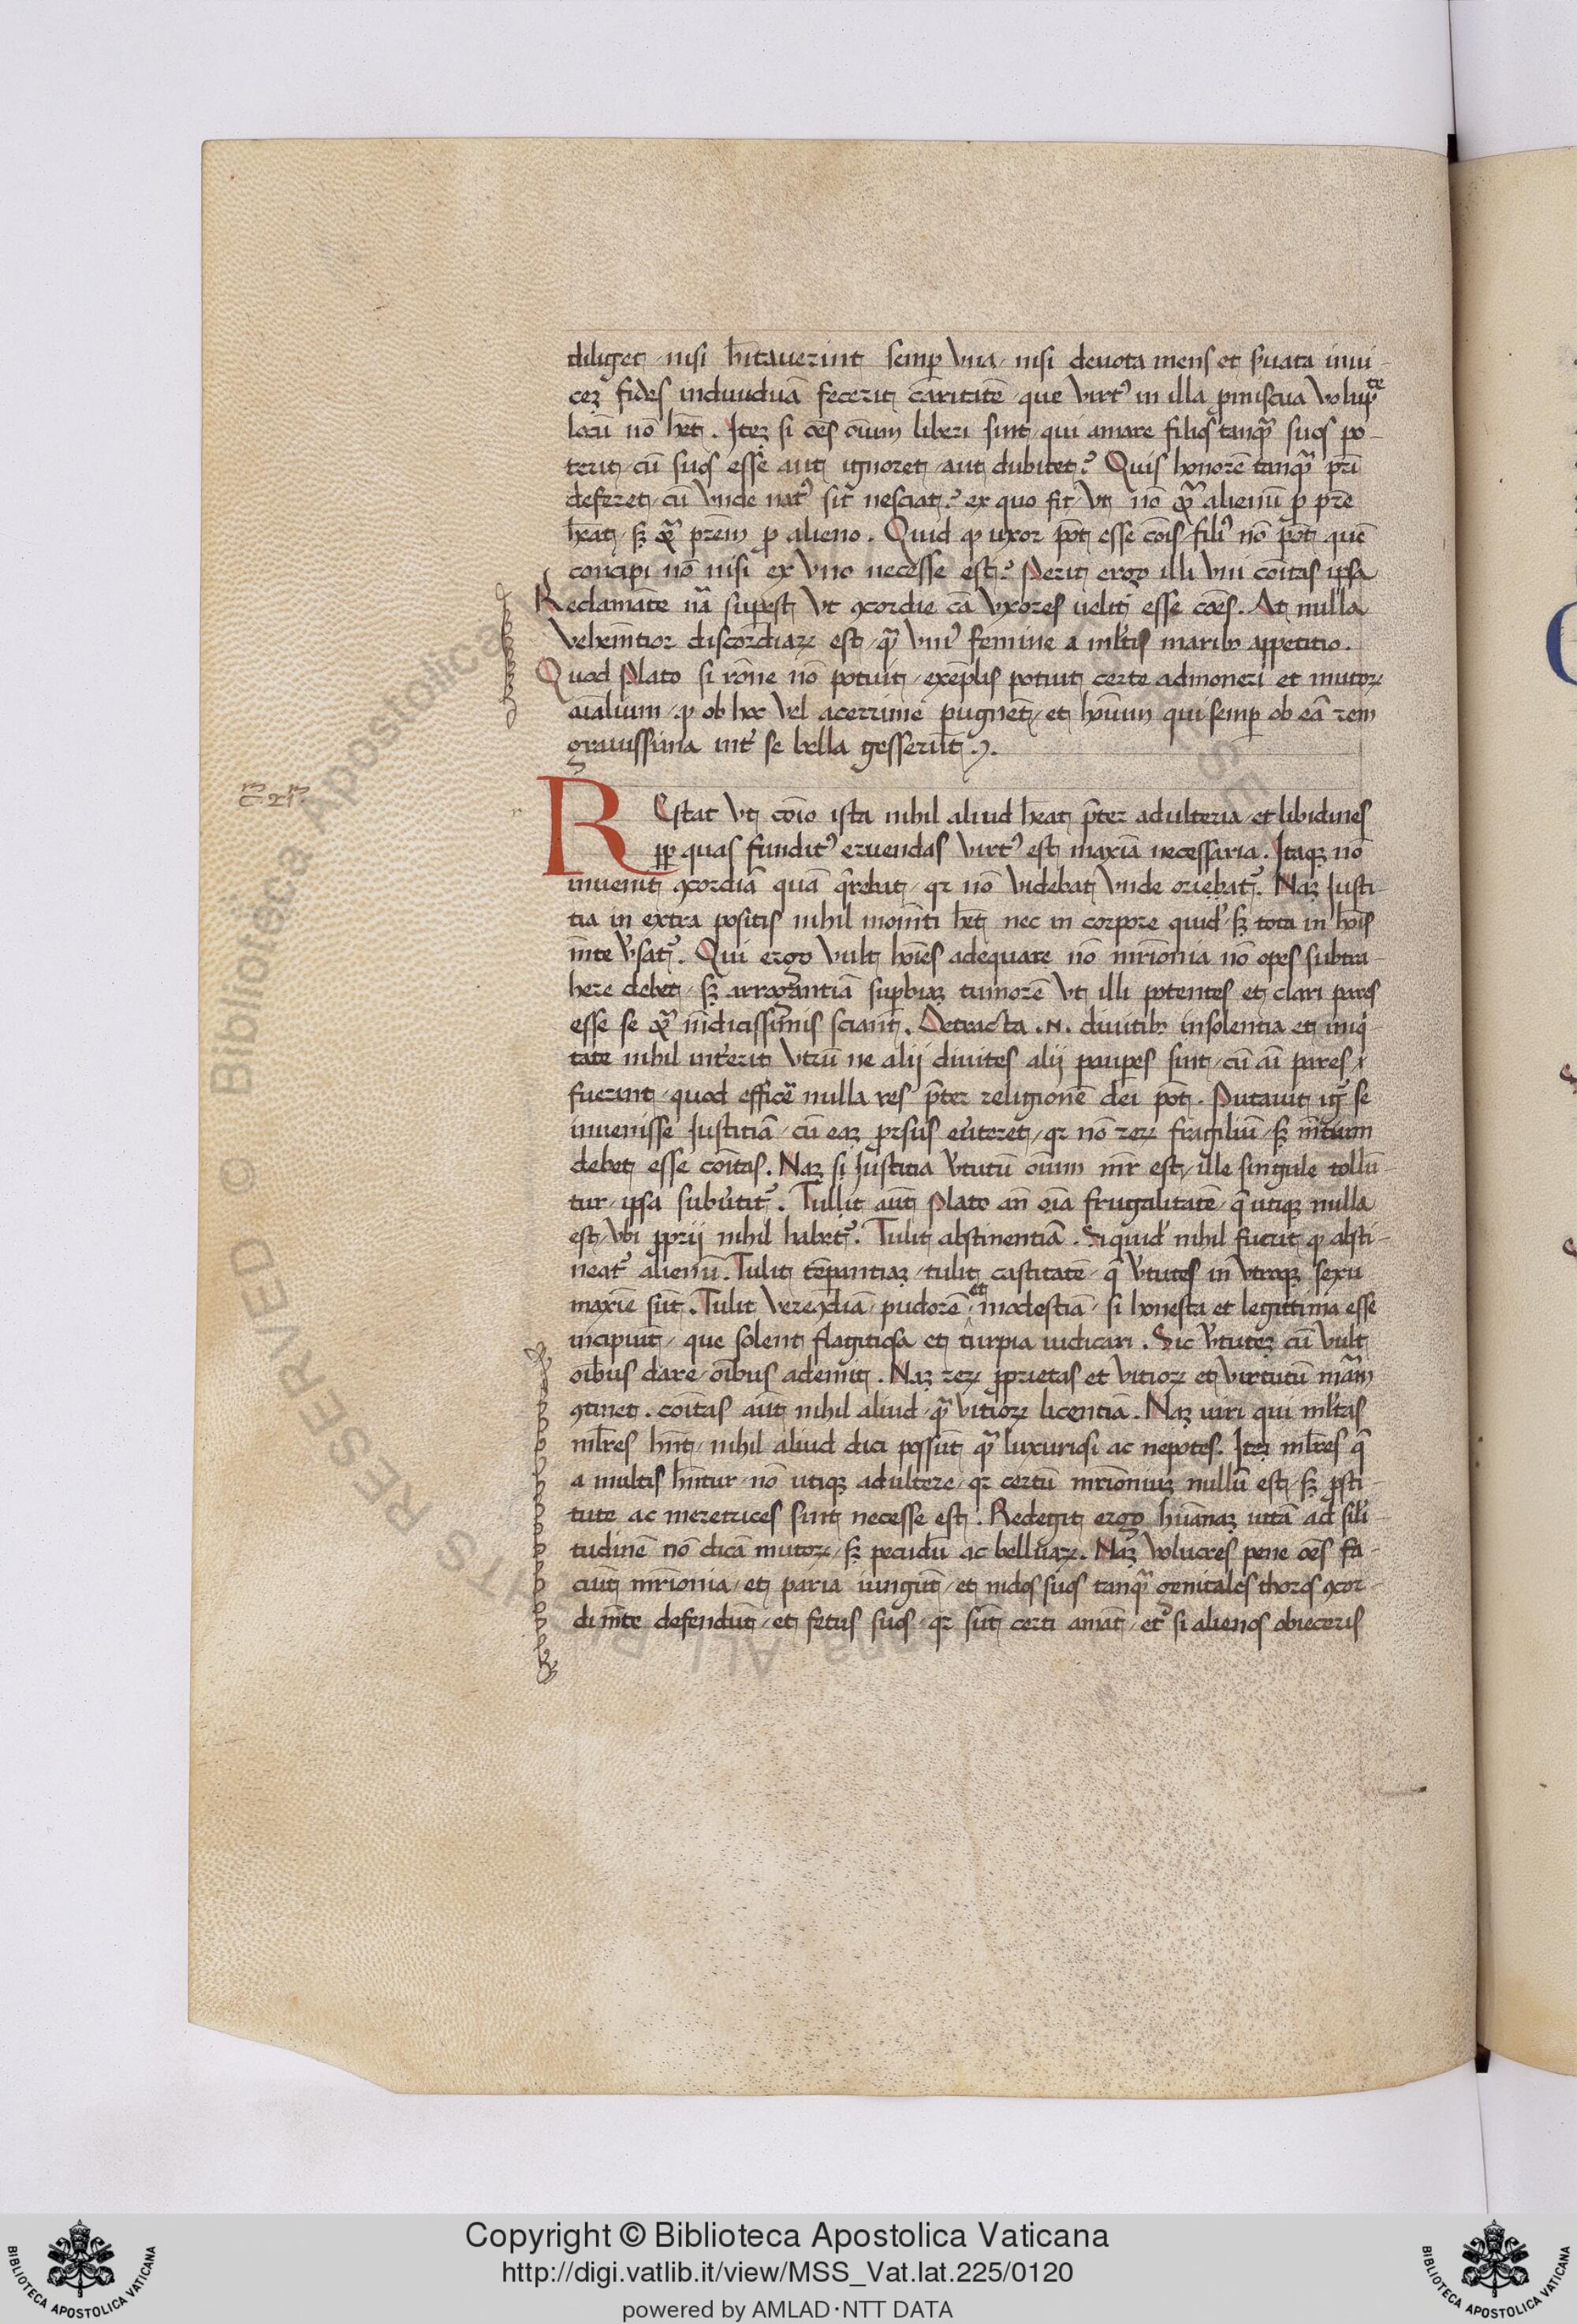 diliget / nisi hītaverint semp Vna / nisi devota mens et sḡuata invi-
cez fides individuā feceriṫ cāritatē que virtꝰ in illa ꝓmiscua Volupte
locū nō hēt . Itez si oēs oīum liberi sint / qui amare filios tanqᷓ suos po-
terit / cū suos esse aut ignoret / aut dubitet? Quis honorē tanqᷓ pr̄i
deferet / cū Vnde natꝰ sit nesciat? ex quo fit / Vt nō qᷓ alienū ꝓ pr̄e
hēat / sꝫ qᷓ prēm ꝓ alieno . Quid ꝙ uxor pōt esse cōis / filiꝰ nō pōt quē
concipi nō nisi ex Vno necesse est? Perit ergo illi Vni coītas ipsa
Reclamāte nā sup̄est Vt ꝯcordie cā Vxores uelit esse cōes . At nulla
Vehemētior discordiaꝝ est / qᷓ Vniꝰ femine a ml̄tis maribꝫ appetitio .
Quod Plato si rōne nō potuit / exēplis potuit certe admoneri et mutoꝝ
aīalium / ꝙ ob hoc Vel acerrime pugnēt / et hoīum qui semp ob eā rem
gravissima intꝰ se bella gesserūt .
REstat Vt cōio ista nihil aliud hēat p̄ter adulteria / et libidines
ꝓp quas funditꝰ eruendas Virtꝰ est maxīa necessaria . Itaqꝫ nō
invenit ꝯcordiā quā q̄rebat / qꝛ nō Videbat Vnde oriebatꝰ . Naꝫ Iusti-
tia in extra positis nihil momēti hēt nec in corpore quidē / sꝫ tota in hoīs
mēte v̓satꝰ . Qui ergo Vult hoīes adequare nō mr̄imonia nō opes subtra-
here debet / sꝫ arrogantiā supbiaꝫ tumorē Vt illi potentes et clari pares
esse se qᷓ mēdicissimis sciant . Detracta .N. divitibꝫ insolentia et iniq̄-
tate nihil int̓erit Vtrū ne alij divites alij paupes sint / cū aī pares
fuerint / quod efficē nulla res p̄ter religionē dei pōt . Putavit igr̄ se
invenisse Iustitiā / cū eaꝫ ꝓrsus ev̓teret / qꝛ nō reꝝ fragiliū / sꝫ mētium
debet esse coītas . Naꝫ si Iustitia v̓tutū oīum mr̄ est / ille singule tollū-
tur / ipsa subv̓titꝰ . Tullit aūt Plato an̄ oīa frugalitatē / q̄ utiqꝫ nulla
est / Vbi ꝓprij nihil habetꝰ . Tulit abstinentiā . Siquidē nihil fuerit ꝙ absti-
neatꝰ alienū . Tulit tēpantiaꝫ / tulit castitatē / q̄ v̓tutes in Vtroqꝫ sexu
maxīe sūt . Tulit Verecūdiā / pudorē / et modestiā / si honesta et legittima esse
incipiūt / que solent flagitiosa et turpia iudicari . Sic v̓tuteꝫ cū Vult
oībus dare / oībus ademit . Naꝫ reꝝ ꝓprietas et Vitioꝝ et Virtutū mᷓām
ꝯtinet . coītas aūt nihil aliud / qᷓ Vitioꝝ licentiā . Naꝫ uiri qui ml̄tas
ml̄res hn̄t / nihil aliud dici possūt qᷓ luxuriosi ac nepotes . Iteꝫ ml̄res q̄
a multis hn̄tur / nō utiqꝫ adultere / qꝛ certū mr̄imoniuꝫ nullū est / sꝫ ꝓsti-
tute ac meretrices sint necesse est . Redegit ergo hūanaꝫ uitā ad sil̄i-
tudinē nō dicā mutoꝝ / sꝫ pecudū ac belluaꝝ . Naꝫ Volucres pene oēs fa-
ciūt mr̄imonia / et paria iungūt / et nidos suos tanqᷓ genitales thoros ꝯcor-
di mēte defendūt / et fetus suos / qꝛ sūt certi amāt / etꝰ si alienos obieceris
Copyright © Biblioteca Apostolica Vaticana
http://digi.vatlib.it/view/MSS_Vat.lat.225/0120
powered by AMLAD·NTT DATA
BIBLIOTECA APOSTOLICA VATICANA
BIBLIOTECA APOSTOLICA VATICANA